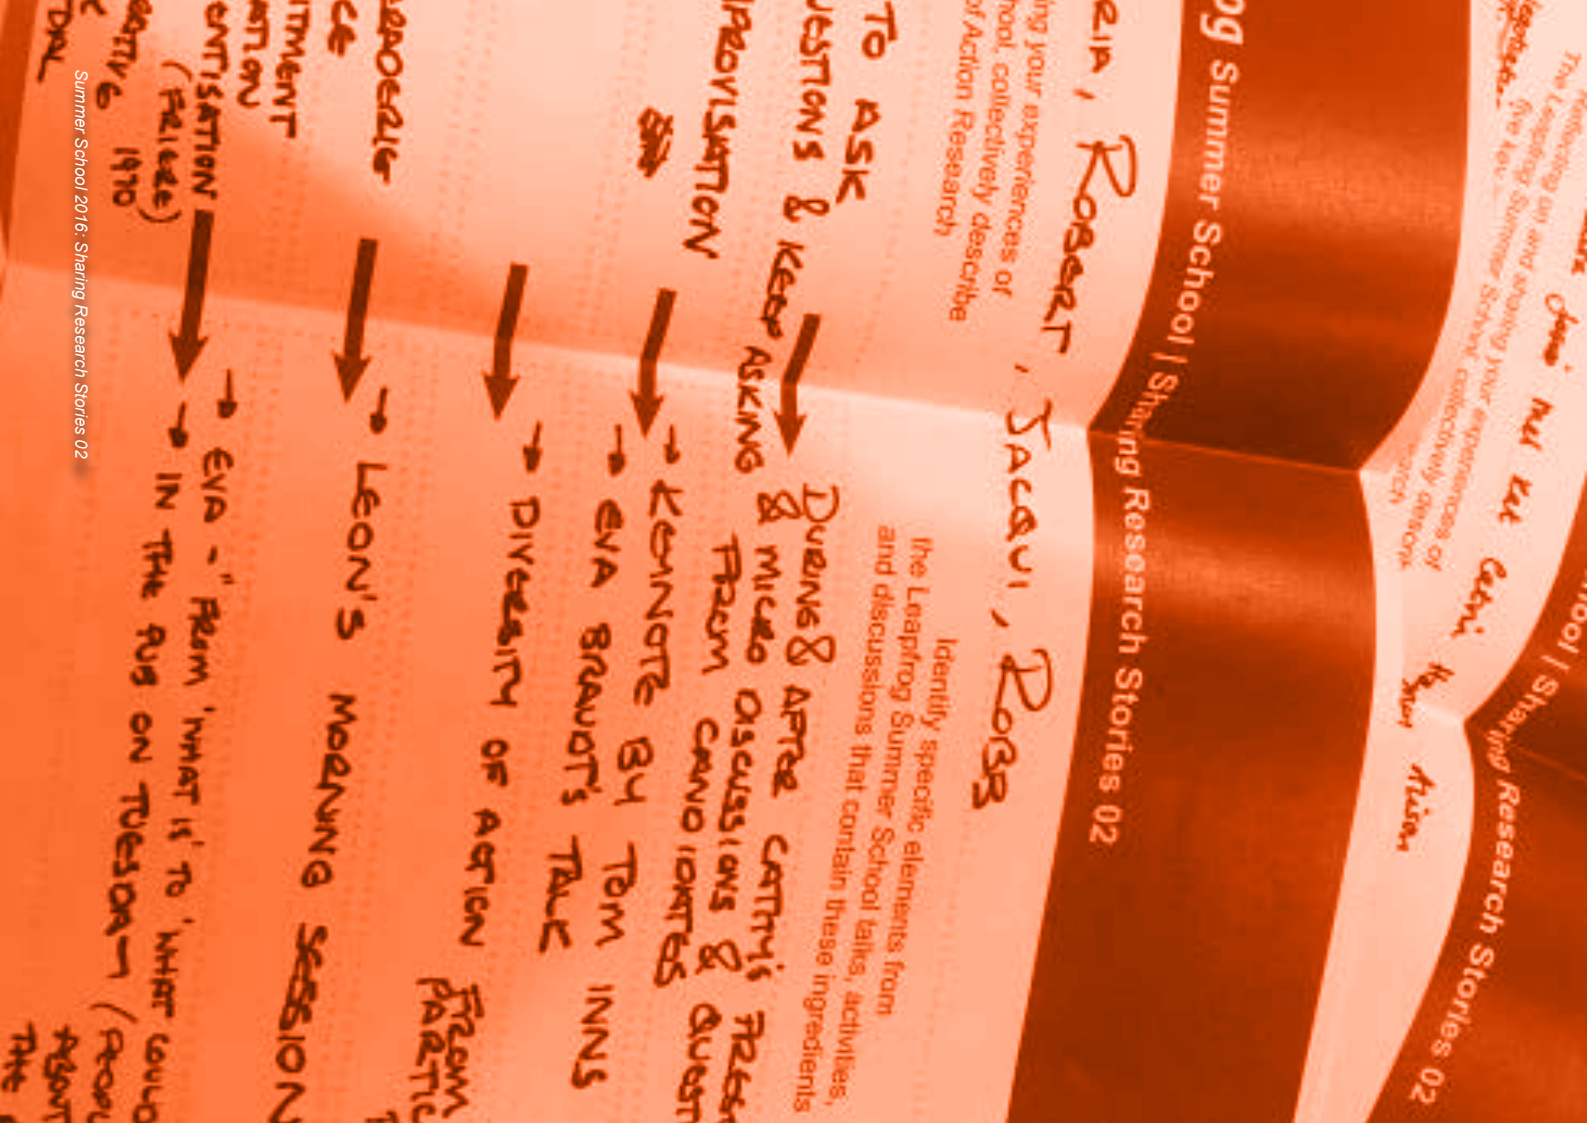 Summer School 2016: Sharing Research Stories 02
og Summer School | Sharing Research Stories 02
RIA, ROBERT, JACQUI, ROBB
ing your experiences of
hool, collectively describe
of Action Research
Identify specific elements from
the Leapfrog Summer School talks, activities,
and discussions that contain these ingredients
TO ASK
UESTIONS & KEEP ASKING
DURING & AFTER CATHY'S PRES
& MICRO DISCUSSIONS & QUEST
FROM CANDIDATES
MPROVISATION
KEYNOTE BY TOM INNS
EVA BRANDT'S TALK
DIVERSITY OF ACTION
FROM
PARTIC
LEON'S MORNING SESSION
ITMENT
ATION
ENTISATION
(FRIERE)
1970
EVA - "FROM 'WHAT IS' TO 'WHAT COULD
IN THE PUB ON TUESDAY (PEOPL
ABOUT
THE
The Leapfrog Summer School
on and sharing your experiences of
the key
collectively describe
ool | Sharing Research Stories 02